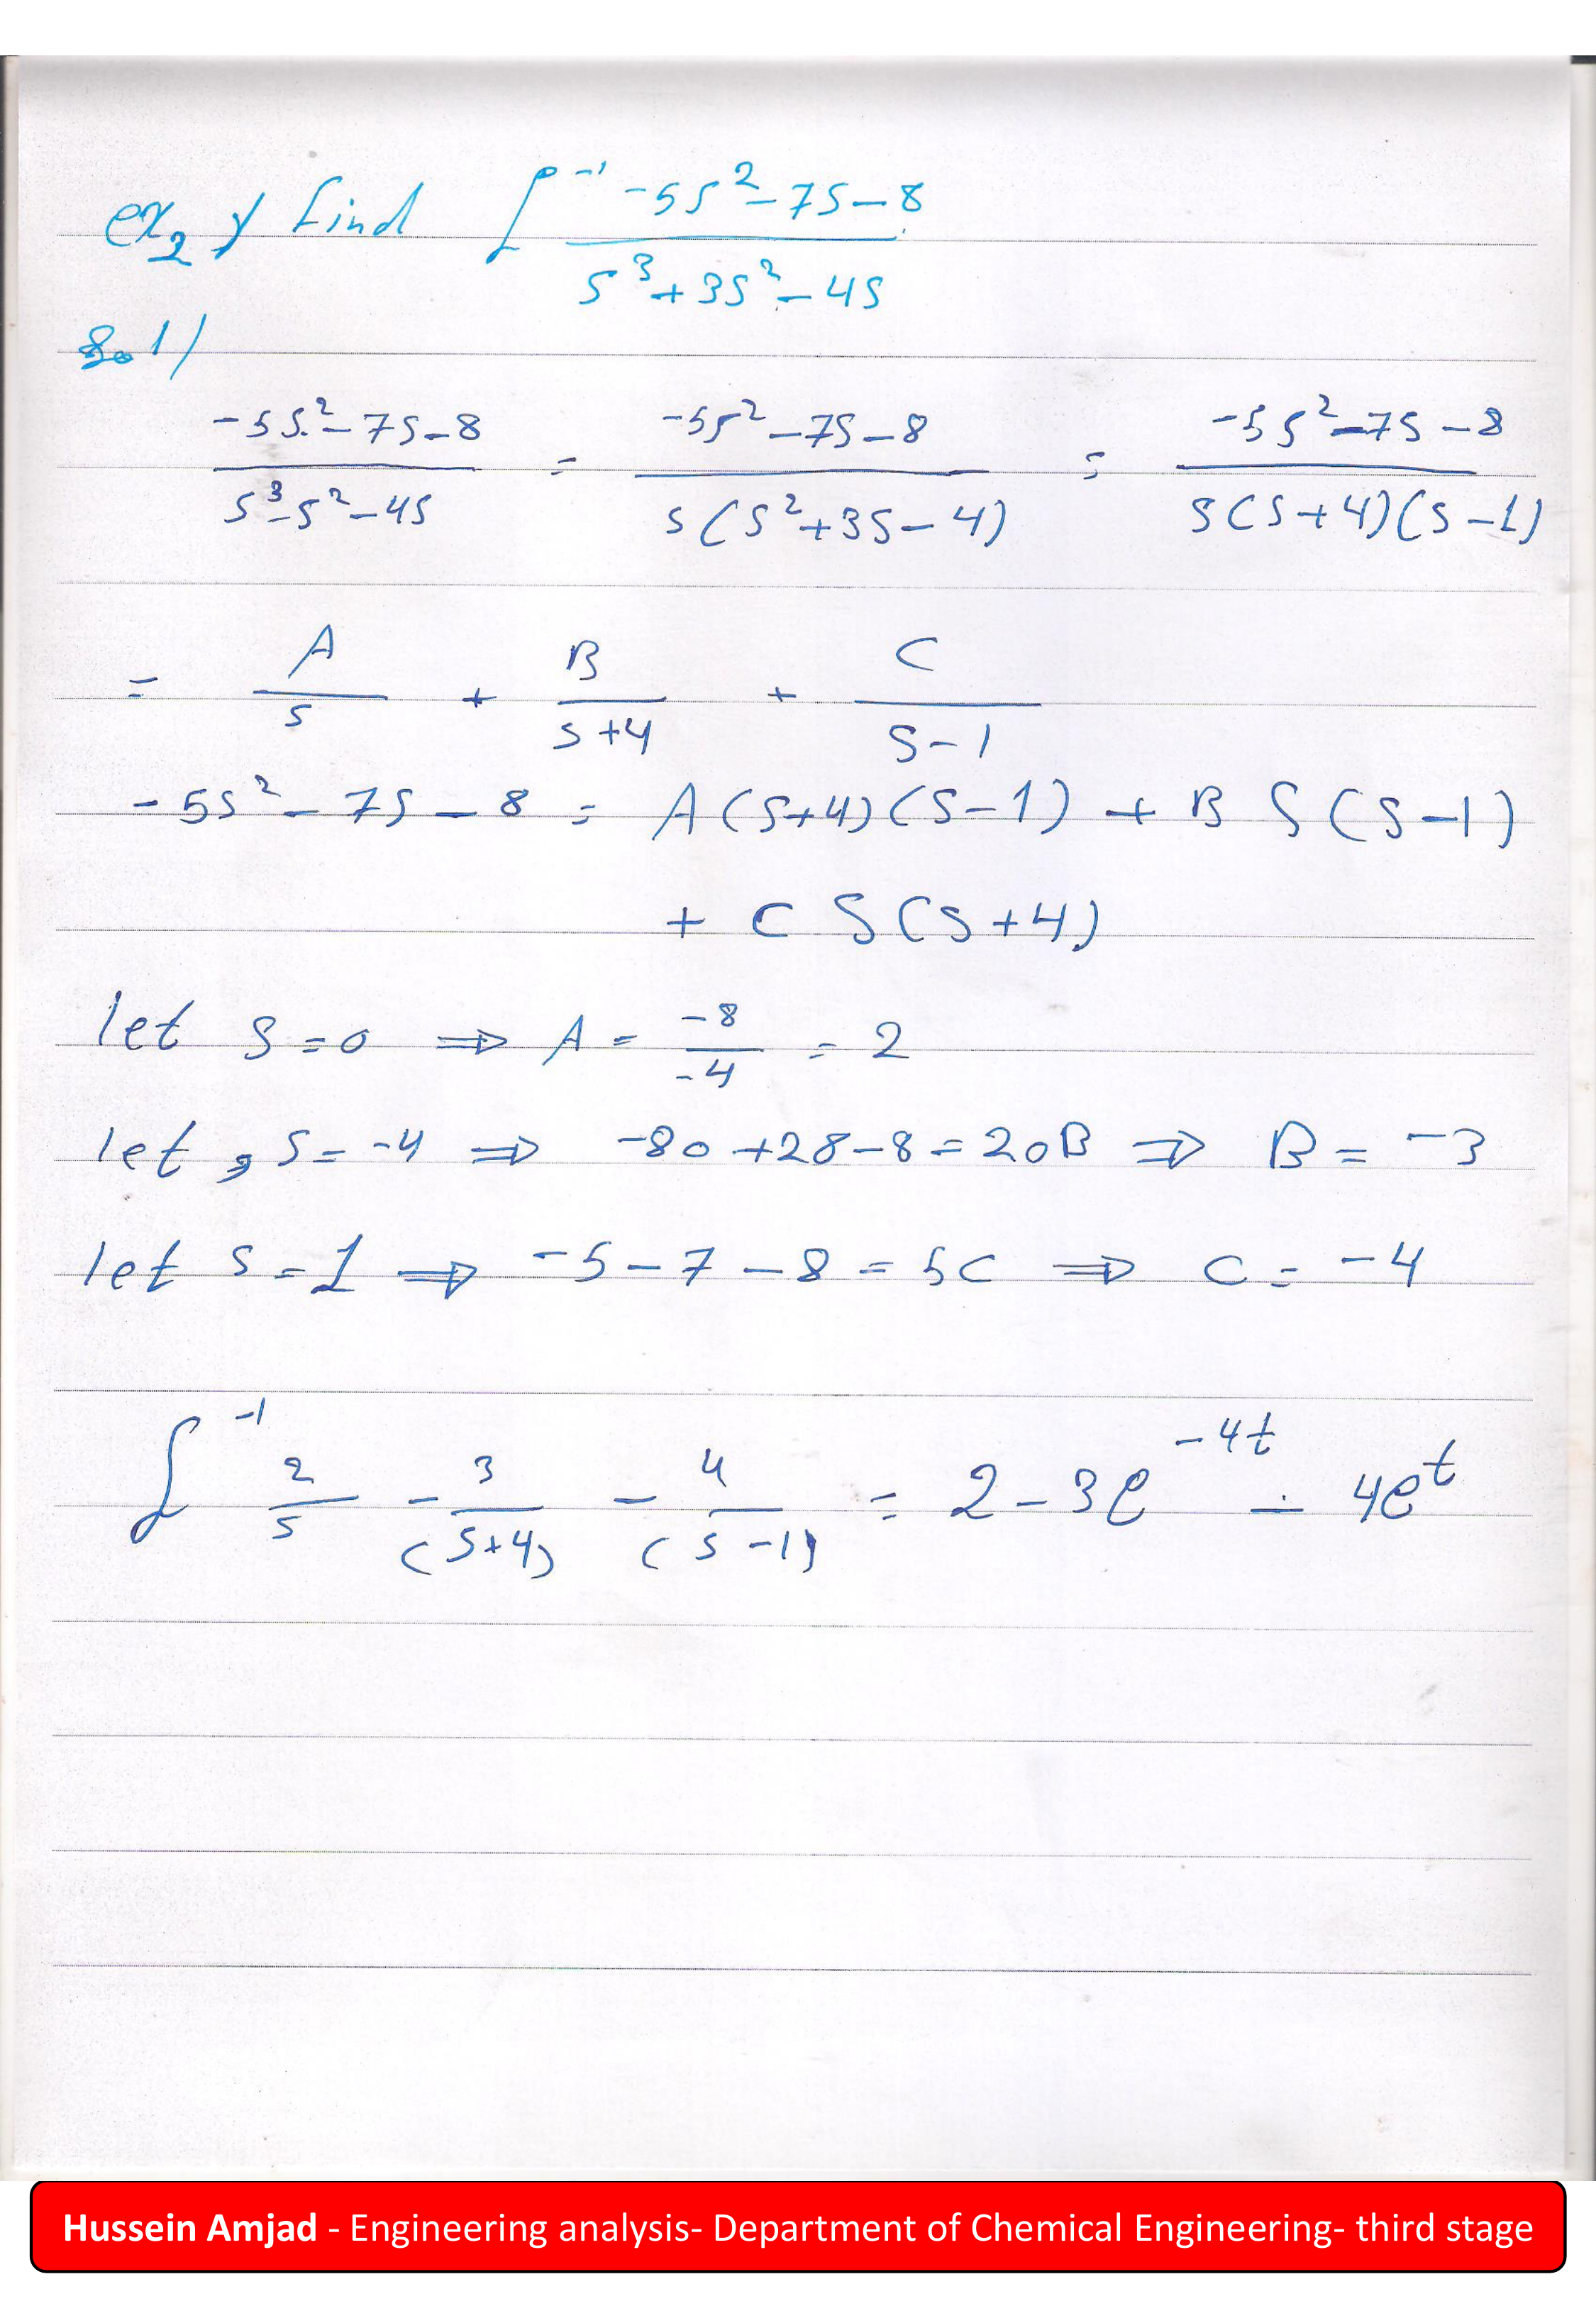 ex₂/ find ℒ⁻¹ (-5s²-7s-8)/(s³+3s²-4s)
Sol/
(-5s²-7s-8)/(s³-s²-4s) = (-5s²-7s-8)/(s(s²+3s-4)) = (-5s²-7s-8)/(s(s+4)(s-1))
= A/s + B/(s+4) + C/(s-1)
-5s²-7s-8 = A(s+4)(s-1) + B S(s-1)
+ C S(s+4)
let s=0 ⇒ A = -8/-4 = 2
let s=-4 ⇒ -80+28-8=20B ⇒ B=-3
let s=1 ⇒ -5-7-8=5C ⇒ C=-4
ℒ⁻¹ 2/s - 3/(s+4) - 4/(s-1) = 2-3e^(-4t) - 4e^t
Hussein Amjad - Engineering analysis- Department of Chemical Engineering- third stage